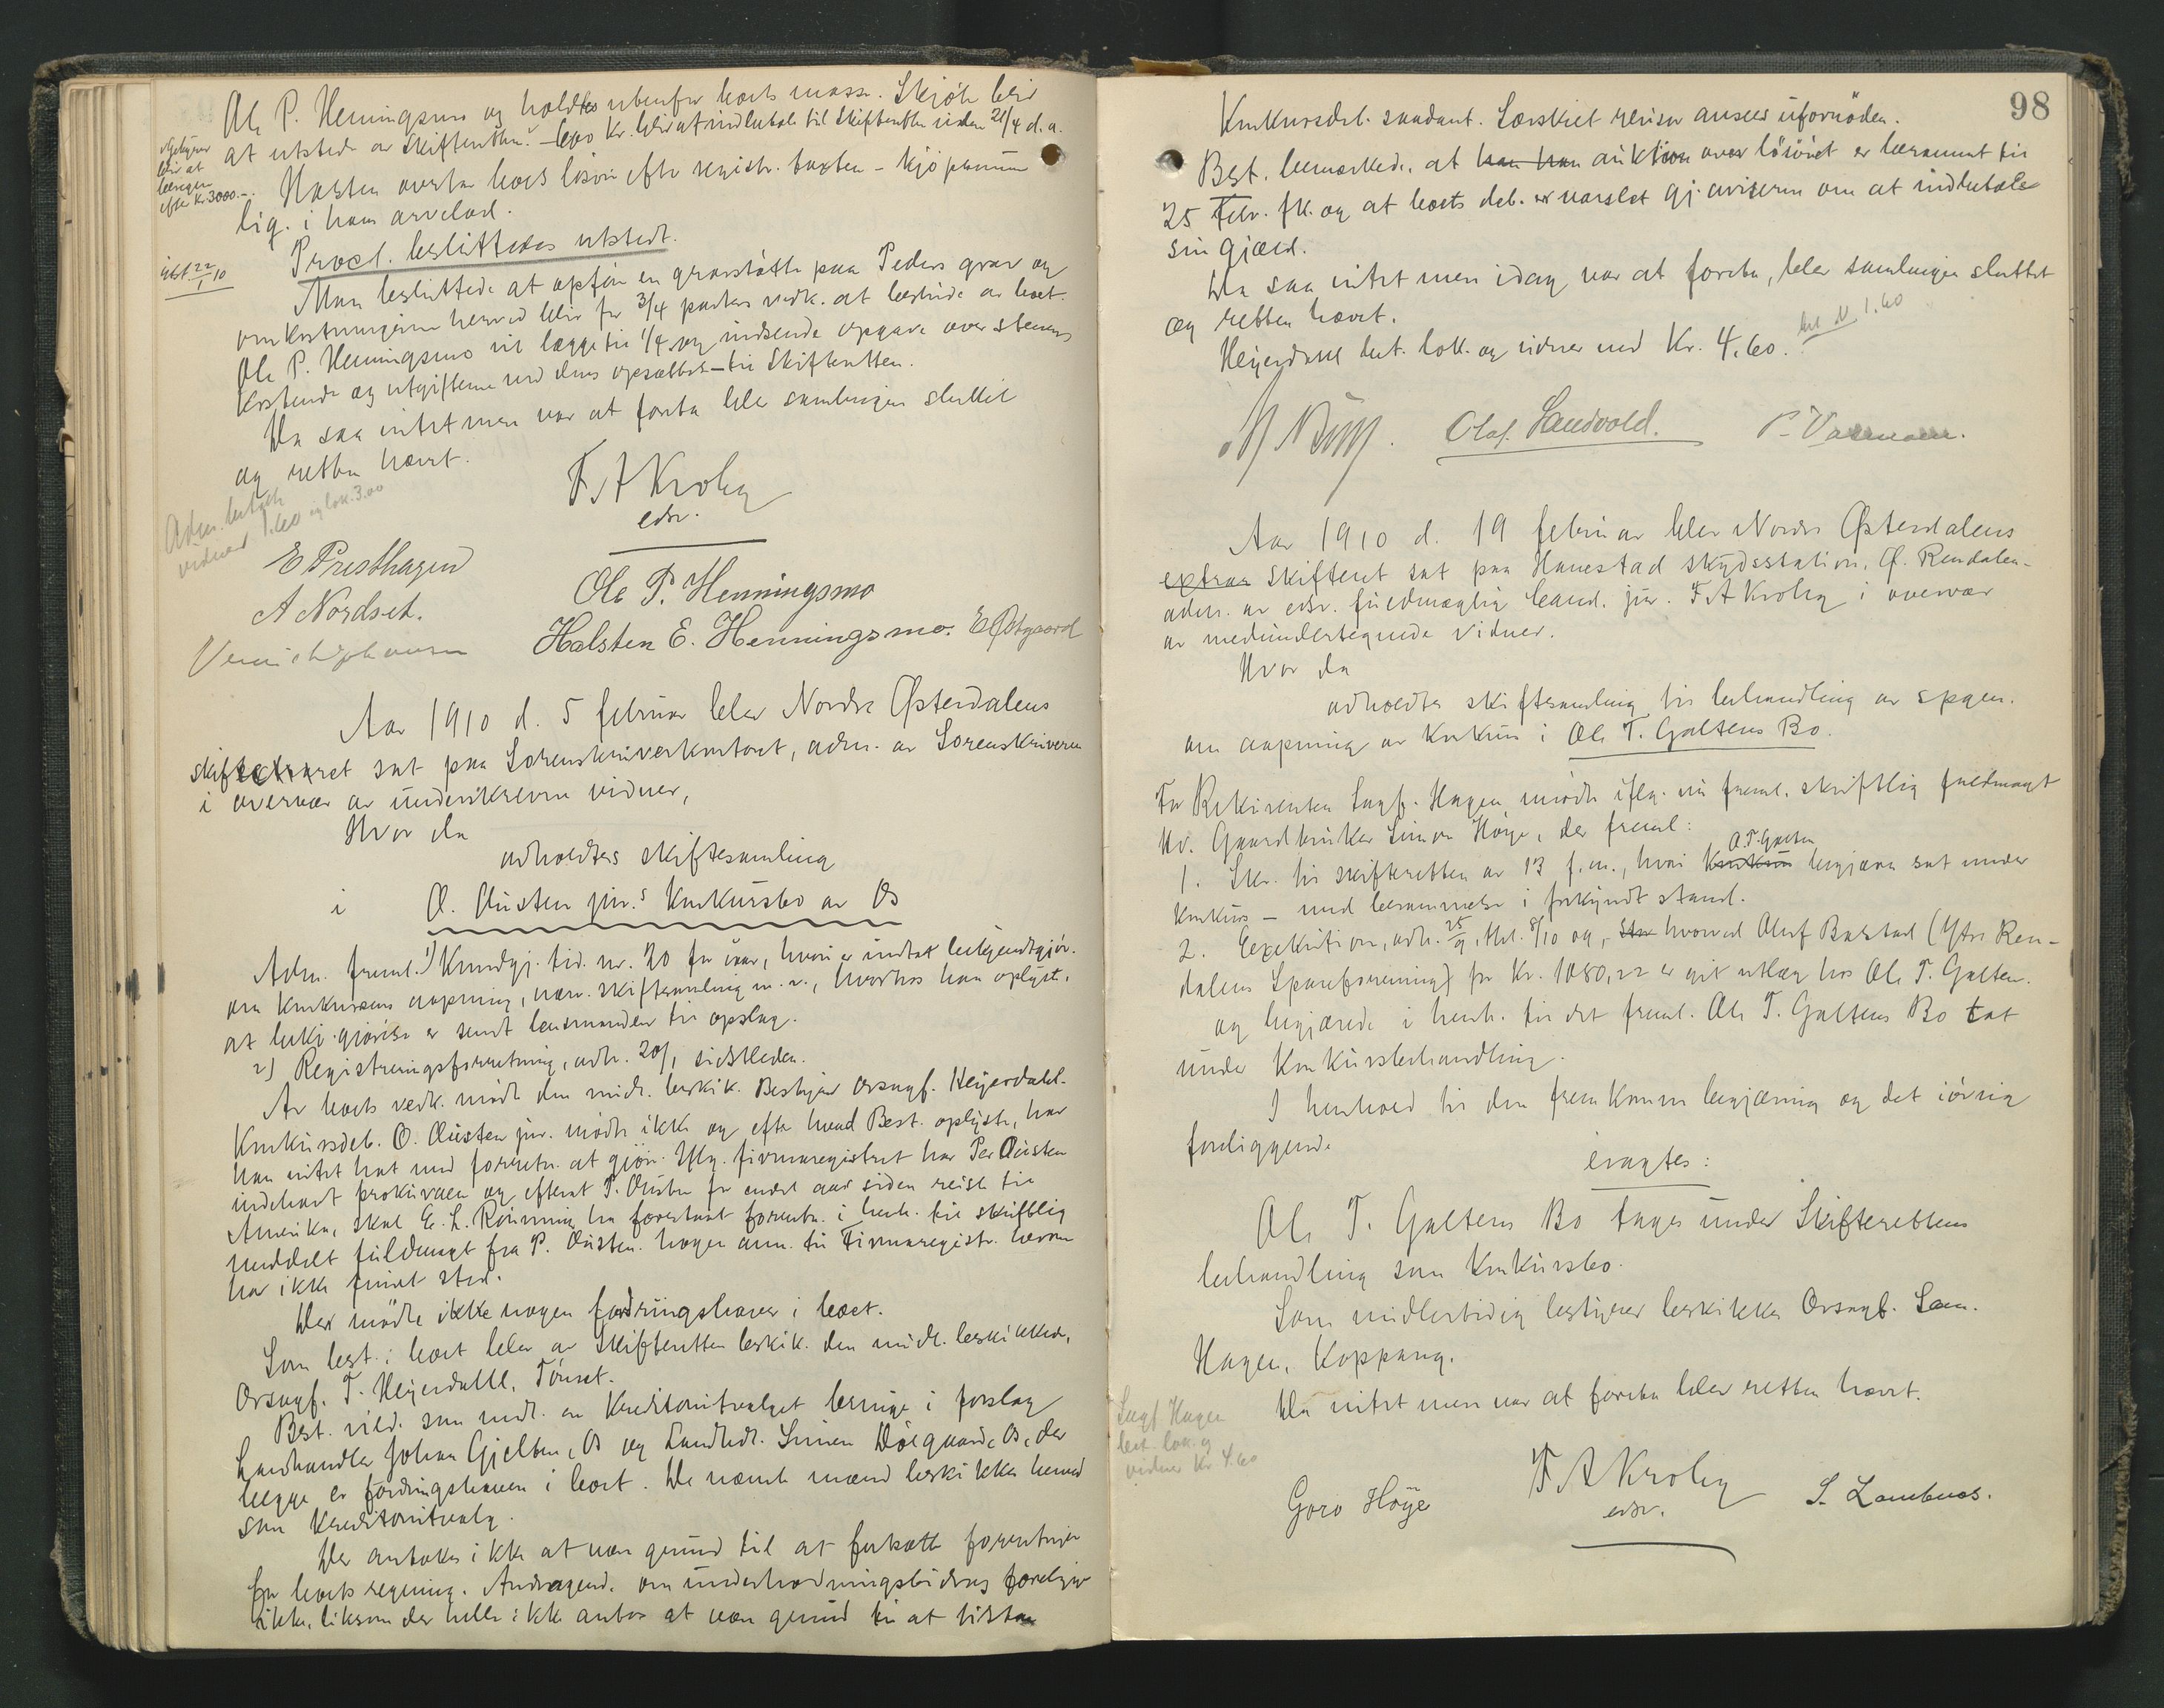 Ole P. Henningsmo og holdtes utenfor boets masse. Skjöte blir
at utstede av Skifteretten. – 600 Kr. blir at indbetale til Skifteretten inden 21/4 d. a.
Gebyrer
blir at
beregne
efter Kr. 3000.-
Halsten overtar boets lösöre efter registr. taxten – kjöpesummen
lig. i hans arvelod.
Procl. besluttedes utstedt.
utst. 22/1 10
Man besluttede at opföre en gravstötte paa Peders grav og
omkostningerne herved blir for 3/4 parters vedk. at bestride av boet.
Ole P. Henningsmo vil lægge til 1/4 og indsende opgave over stenens
kostende og utgifterne ved dens opsættelse til Skifteretten.
Da saa intet mere var at foreta blev samlingen sluttet
og retten hævet.
Adm. betalt
vidner 1.60 og lok. 3.00
F. A Krohg
edsv.
E Presthagen
A Nordset.
Ole P. Henningsmo
Halsten E. Henningsmo. E Östgaard
Aar 1910 d. 5 februar blev Nordre Østerdalens
skifteret sat paa Sorenskriverkontoret, adm. av Sorenskriveren
i overvær av underskrevne vidner,
Hvor da
avholdtes skiftesamling
i O. Austen jun.s Konkursbo av Os
Adm. freml. 1) Kundgj. tid. nr. 20 for iaar, hvori er indtat bekjendtgjör.
om konkursens aapning, nærv. skiftesamling m. v., hvorhos han oplyste,
at bekj.gjörelse er sendt lensmanden til opslag.
2) Registreringsforretning, avh. 20/1 sidstleden.
Av boets vedk. mödte den midl. beskik. Bestyrer Ovsagf. Heyerdahl.
Konkursdeb. O. Austen jun. mödte ikke og efter hvad Best. oplyste, har
han intet hat med forretn. at gjöre. Iflg. firmaregistret har Per Austen
indehavt prokuraen og efterat P. Austen for endel aar siden reiste til
Amerika, skal E. L. Rönning ha forestaat forretn. i henh. til skriftlig
meddelt fuldmagt fra P. Austen. Nogen anm. til Firmaregistr. herom
har ikke fundet sted.
Der mödte ikke nogen fordringshaver i boet.
Som best. i boet blev av Skifteretten beskik. den midl. beskikkede,
Ovsagf. T. Heyerdahl, Tönset.
Best. vild. som medl. av Kreditorutvalget bringe i forslag
Landhandler Johan Gjelten, Os og Landhdl. Simen Nörgaard, Os, der
begge er fordringshavere i boet. De nævnte mænd beskikkes herved
som Kreditorutvalg.
Der antokes ikke at være grund til at fortsætte forretningen
for boets regning. Andragende om underholdningsbidrag foreligger
ikke, likesom der heller ikke antas at være grund til at tilstaa
98
Konkursdeb. saadant. Særskilt revisor ansees ufornöden.
Best. bemerkede, at han han auktion over lösöret er berammet til
25 Febr. fk. og at boets deb. er varslet gj. aviserne om at indbetale
sin gjæld.
Da saa intet mere idag var at foreta, blev samlingen sluttet
og retten hævet.
Heyerdahl bet. lok. og vidner med Kr. 4.60.
bet N. 1.60
Olaf Sandvold.
Aar 1910 d. 19 februar blev Nordre Østerdalens
extra skifteret sat paa Hanestad skydsstation, Ø. Rendalen –
adm. av edsv. fuldmægtig Cand. jur. F. A Krohg i overvær
av medundertegnede vidner.
Hvor da
avholdtes skiftesamling til behandling av spgsm.
om aapning av Konkurs i Ole T. Galtens Bo.
For Rekvirenten Sagf. Hagen mödte iflg. nu freml. skriftlig fuldmagt
Hr. Gaardbruker Simen Höye, der freml:
1. Skr. til skifteretten av 13 f. m., hvori Konkurs O. T. Galten begjæres sat under
konkurs – med berammelse i forkyndt stand.
2. Exekution, avh. 25/9, thl. 8/10 og, Str hvorved Oluf Bakstad (Ytre Ren-
dalens Spareforening) for Kr. 1080,22 er git utlæg hos Ole T. Galten.
og begjærede i henh. til det freml. Ole T. Galtens Bo tat
under Konkursbehandling.
I henhold til den fremkomne begjæring og det iövrig
foreliggende
eragtes:
Ole T. Galtens Bo tages under Skifterettens
behandling som Konkursbo.
Som midlertidig bestyrer beskikkes Ovsagf. Sam.
Hagen, Koppang.
Da intet mere var at foreta blev retten hævet.
Sagf. Hagen
bet. lok. og
vidner Kr 4.60
F A Krohg
edsv.
Goro Höye
S. Lombnæs.